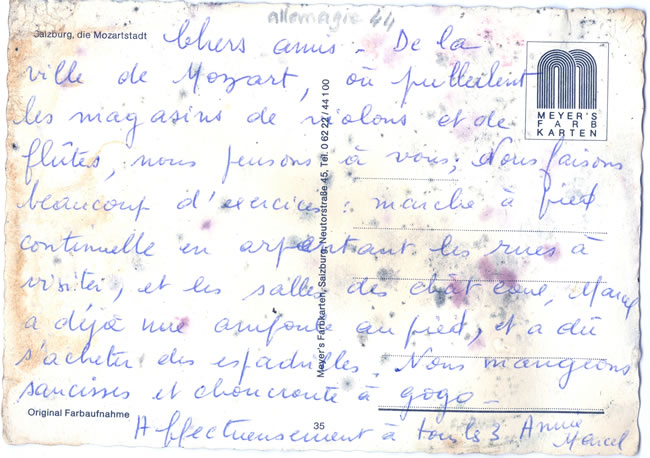 allemagne 44
Salzburg, die Mozartstadt
Chers amis - De la
ville de Mozart, où pullulent
les magasins de violons et de
flûtes, nous pensons à vous; Nous faisons
beaucoup d'exercices : marche à pied
continuelle en arpentant les rues à
visiter, et les salles des châteaux, Marcel
a déjà une ampoule au pied, et a dû
s'acheter des espadrilles. Nous mangeons
saucisses et choucroute à gogo -
Affectueusement à tous les 3 Anna
Marcel
MEYER'S
FARB
KARTEN
Meyer's Farbkarten, Salzburg, Neutorstraße 45, Tel. 0 62 22 / 44 1 00
Original Farbaufnahme
35